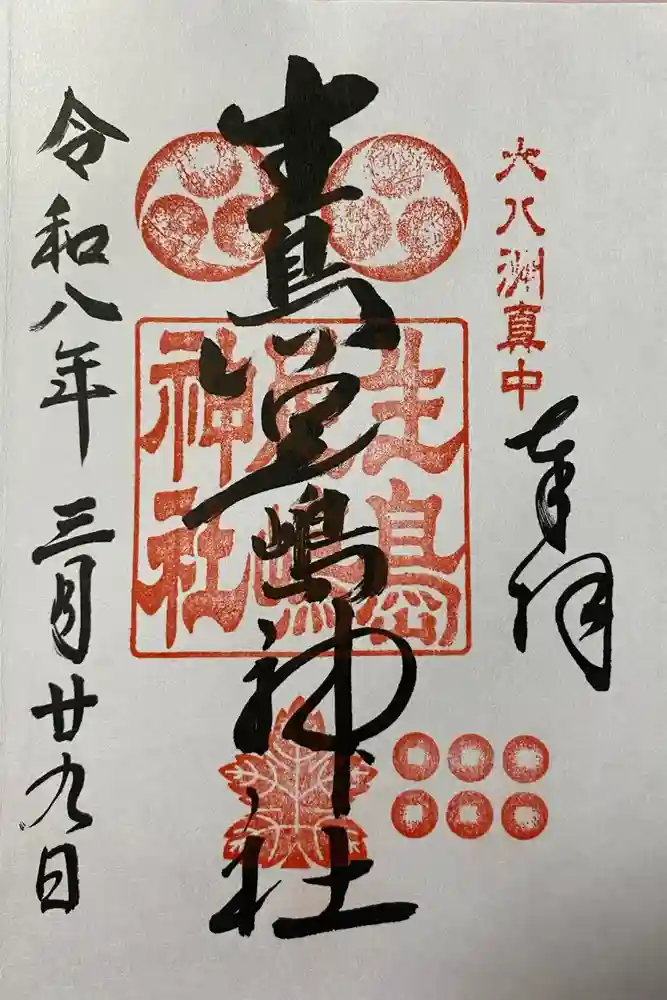 大八洲真中
奉拝
生島足嶋神社
生島
足嶋
神社
令和八年 三月廿九日